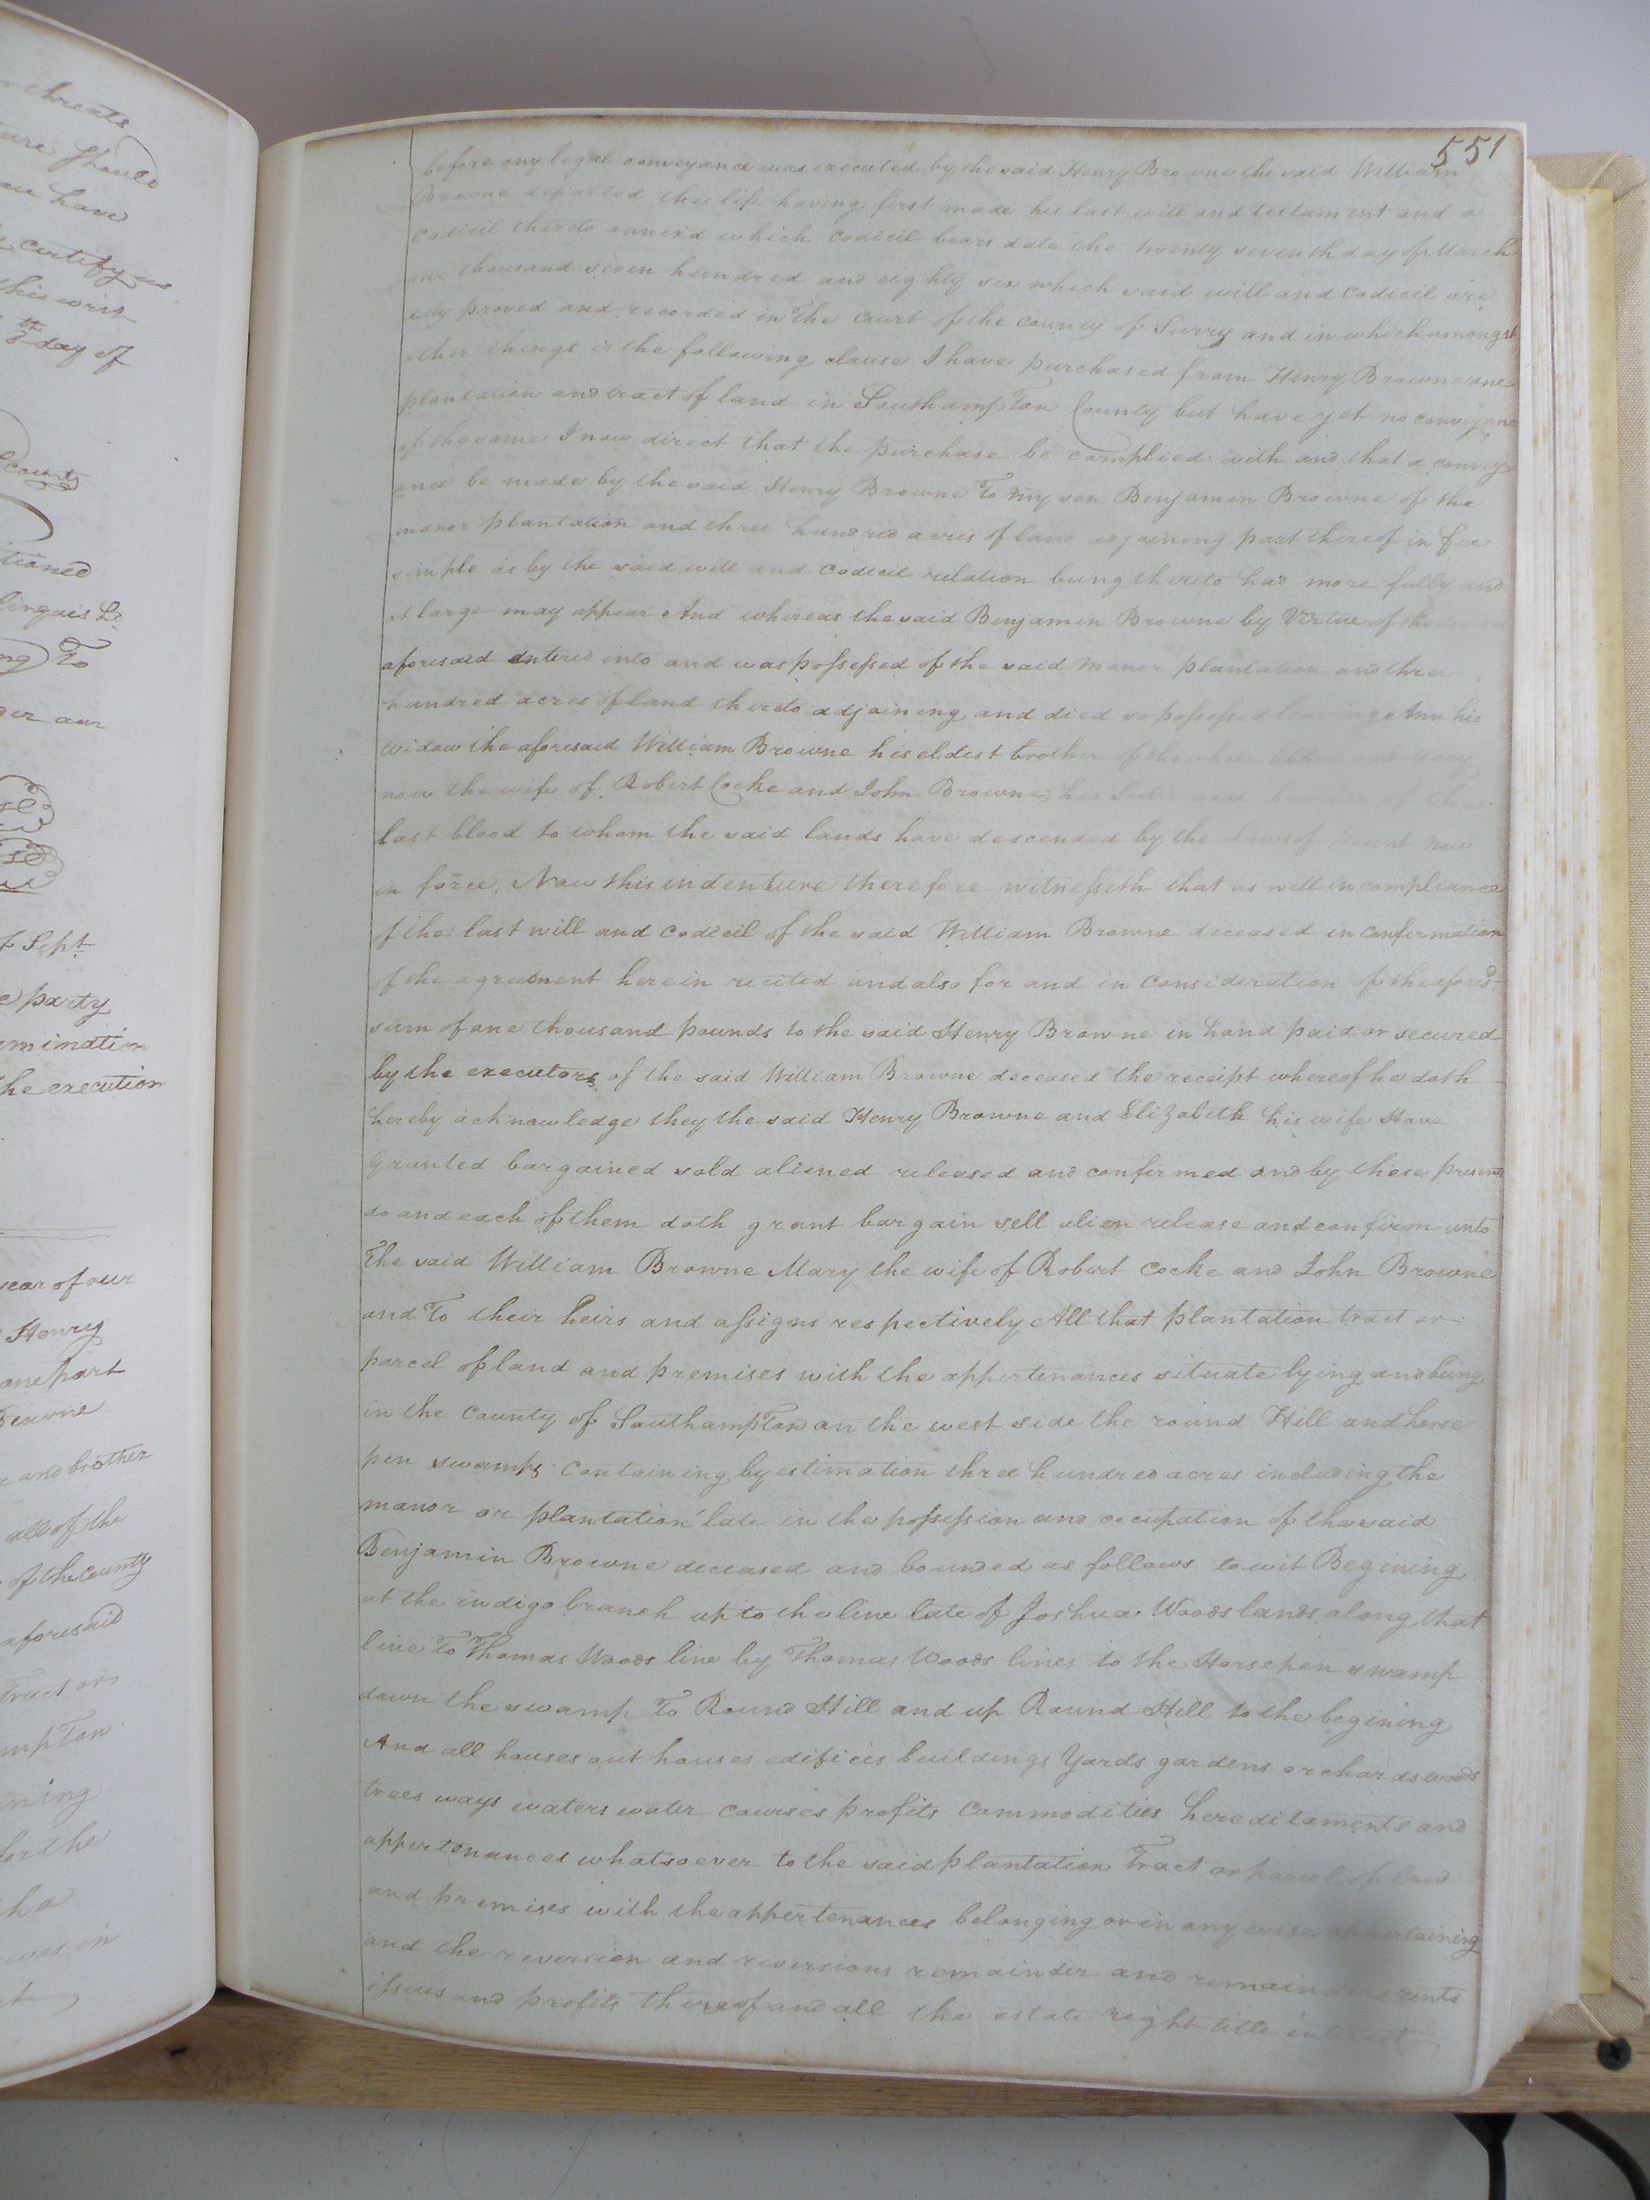 threats
ture should
have
certify
this writ
8th day of
County
tioned
ng) To
der our
Sept
party
mination
the execution
year of our
Henry
one part
Browne
and brother
all of the
of the County
aforesaid
Tract or
mpTon
ning
for the
was in
551
before any legal conveyance was executed by the said Henry Browne the said William
Browne departed this life having first made his last will and testament and a
Codicil thereto annex'd which Codicil bears date the twenty seventh day of March
one thousand seven hundred and eighty six which said will and Codicil are
duly proved and recorded in The Court of the County of Surry and in which amongst
other things is the following clause I have purchased from Henry Browne one
plantation and tract of land in SouthampTon County but have yet no conveyance
of the same I now direct that the purchase be complied with and that a convey
ance be made by the said Henry Browne To my son Benjamin Browne of the
manor plantation and three hundred acres of land adjoining part thereof in fee
simple as by the said will and Codicil relation being thereto had more fully and
at large may appear And whereas the said Benjamin Browne by Virtue of the
aforesaid entered into and was possessed of the said manor plantation and three
hundred acres of land thereto adjoining and died so possessed leaving Ann his
widow the aforesaid William Browne his eldest brother of the whole blood and Mary
now the wife of Robert Cocke and John Browne his
last blood to whom the said lands have descended by the Laws of now
in force, Now this indenture therefore witnesseth that as well in compliance
of the last will and codicil of the said William Browne deceased in confirmation
of the agreement herein recited and also for and in consideration of the afores.d
sum of one thousand pounds to the said Henry Browne in hand paid or secured
by the executors of the said William Browne deceased the receipt whereof he doth
hereby acknowledge they the said Henry Browne and Elizabeth his wife Have
Granted bargained sold aliened released and confirmed and by these presents
do and each of them doth grant bargain sell alien release and confirm unto
The said William Browne Mary the wife of Robert Cocke and John Browne
and To their heirs and assigns respectively All that plantation tract or
parcel of land and premises with the appertenances situate lying and being
in the County of SouthampTon on the west side the round Hill and horse
pen swamps containing by estimation three hundred acres including the
manor or plantation late in the possession and occupation of the said
Benjamin Browne deceased and bounded as follows to wit Begining
at the indigo branch up to the line late of Joshua Woods lands along that
line To Thomas Woods line by Thomas Woods lines to the Horsepen swamp
down the swamp To Round Hill and up Round Hill to the begining
And all houses out houses edifices buildings Yards gardens orchards woods
trees ways waters water courses profits Commodities hereditaments and
appertenances whatsoever to the said plantation Tract or parcel of land
and premises with the appertenances belonging or in any wise appertaining
and the reversion and reversions remainder and remainders rents
issues and profits thereof and all the estate right title interest